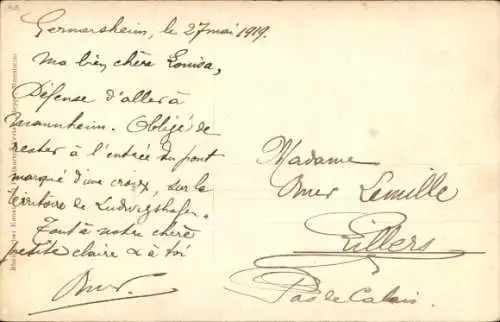 Germersheim, le 27 mai 1919.
Ma bien chère Louisa,
Défense d'aller à
Mannheim. Obligé de
rester à l'entrée du pont
marqué d'une croix, sur le
territoire de Ludwigshafen.
Tout à notre chère
petite Claire & à toi
Omer
Madame
Omer Lemille
Lillers
Pas de Calais.